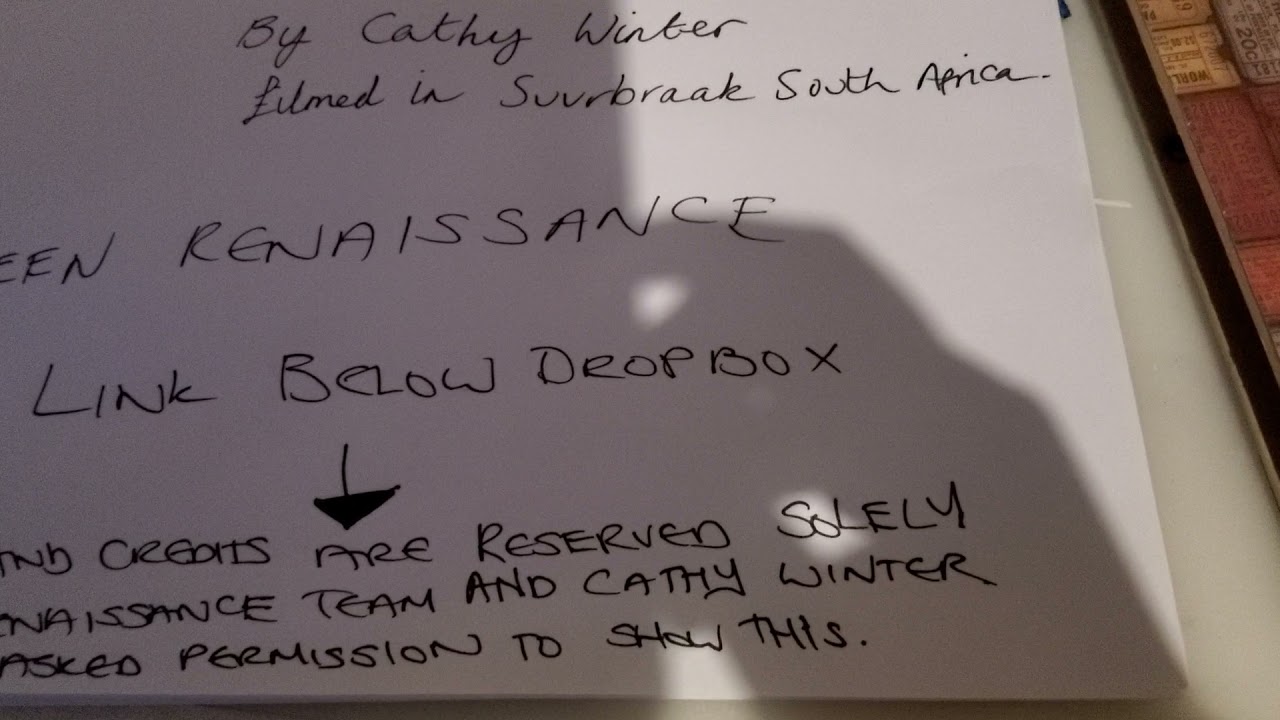 By Cathy Winter
filmed in Suurbraak South Africa.
EEN RENAISSANCE
LINK BELOW DROPBOX
AND CREDITS ARE RESERVED SOLELY
ENAISSANCE TEAM AND CATHY WINTER
ASKED PERMISSION TO SHOW THIS.
WORL
20c